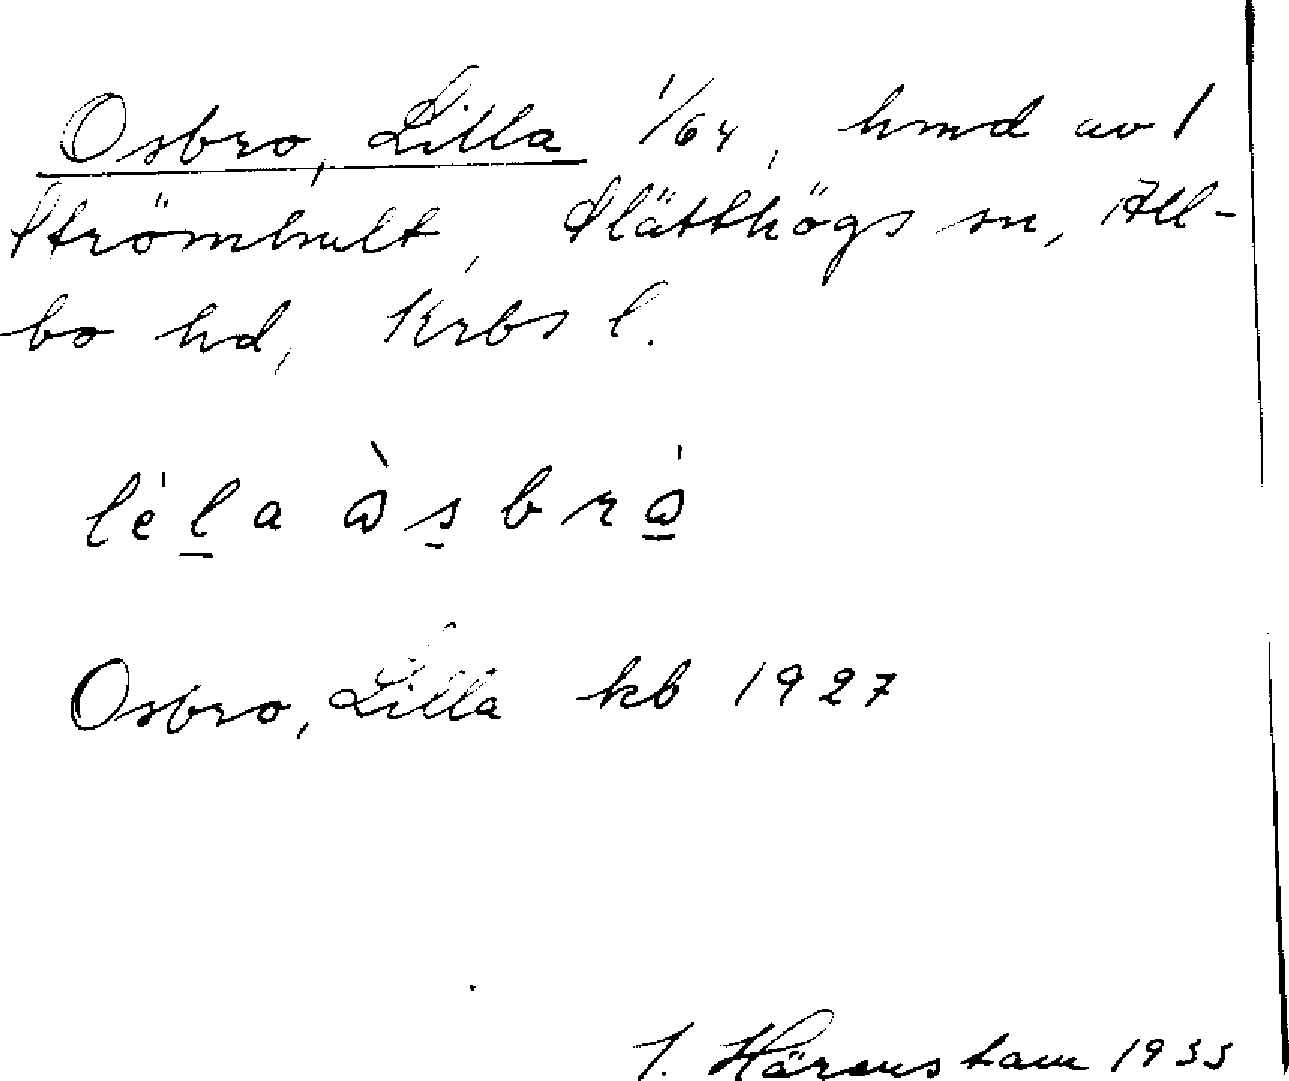 Osbro, Lilla 1/64, hmd av 1
Strömhult, Slätthögs sn, All-
bo hd, Krbs l.
Osbro, Lilla kb 1927
J. Härenstam 1933